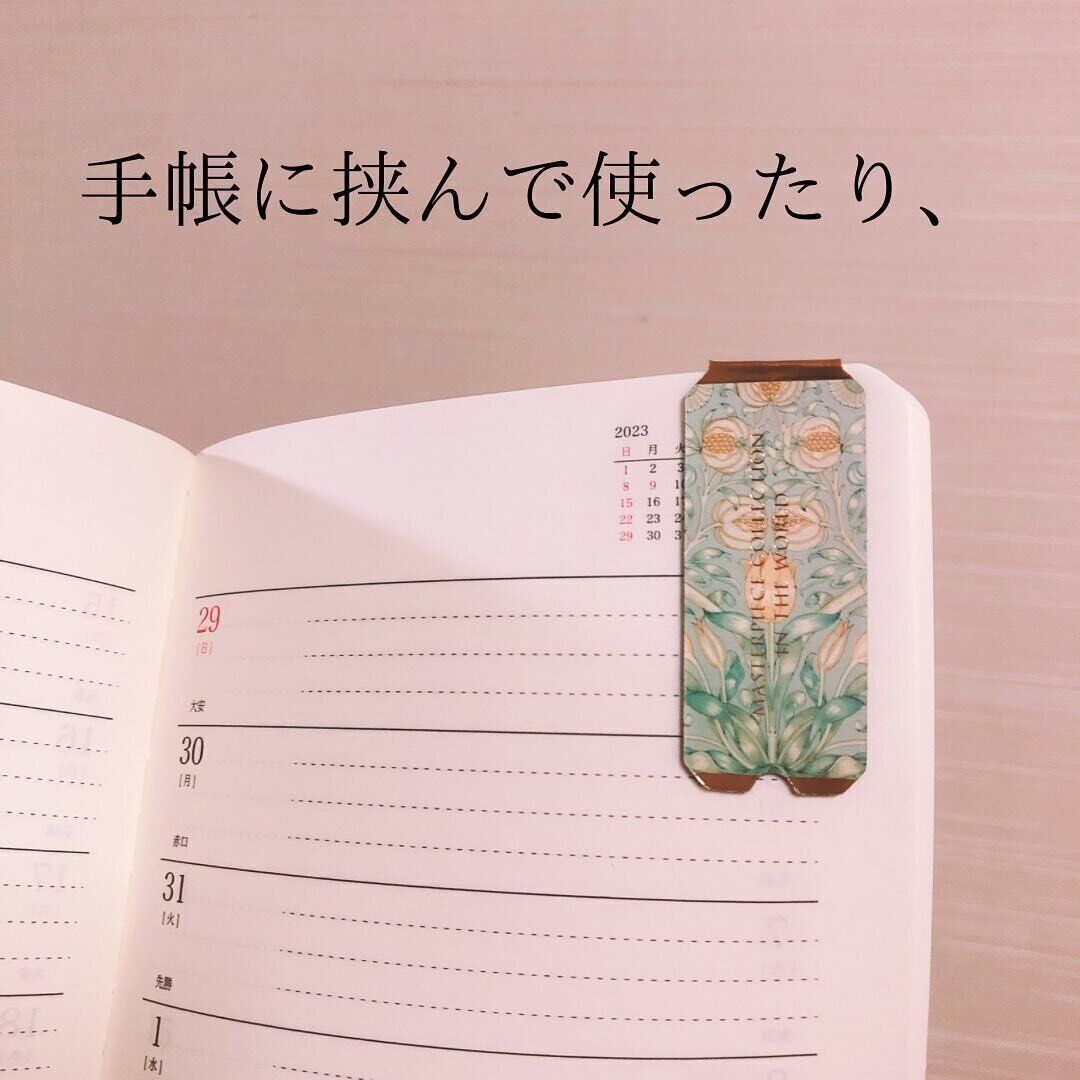 手帳に挟んで使ったり、
2023
日 月 火
1 2 3
8 9 10
15 16 17
22 23 24
29 30 31
MASTERPIECE COLLECTION
IN THE WORLD
29
[日]
大安
30
[月]
赤口
31
[火]
先勝
1
[水]